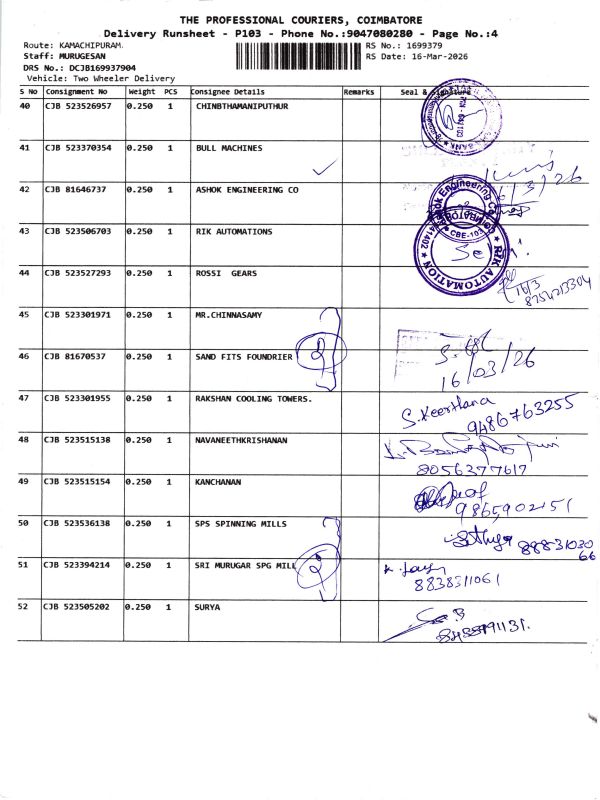 THE PROFESSIONAL COURIERS, COIMBATORE
Delivery Runsheet - P103 - Phone No.:9047080280 - Page No.:4
Route: KAMACHIPURAM. RS No.: 1699379
Staff: MURUGESAN RS Date: 16-Mar-2026
DRS No.: DCJB169937904
Vehicle: Two Wheeler Delivery
S No Consignment No Weight PCS Consignee Details Remarks Seal & Signature
40 CJB 523526957 0.250 1 CHINBTHAMANIPUTHUR
BANK
41 CJB 523370354 0.250 1 BULL MACHINES
/3/26
42 CJB 81646737 0.250 1 ASHOK ENGINEERING CO
Ashok Engineering
CBE-103
43 CJB 523506703 0.250 1 RIK AUTOMATIONS
★ RIK AUTOMATION ★ 641402
44 CJB 523527293 0.250 1 ROSSI GEARS
16/3
8754213304
45 CJB 523301971 0.250 1 MR.CHINNASAMY
46 CJB 81670537 0.250 1 SAND FITS FOUNDRIER 2
16/03/26
47 CJB 523301955 0.250 1 RAKSHAN COOLING TOWERS.
S. Keerthana
9486763255
48 CJB 523515138 0.250 1 NAVANEETHKRISHANAN
8056377617
49 CJB 523515154 0.250 1 KANCHANAN
9865902151
50 CJB 523536138 0.250 1 SPS SPINNING MILLS
8883103066
51 CJB 523394214 0.250 1 SRI MURUGAR SPG MILL 2
8838311061
52 CJB 523505202 0.250 1 SURYA